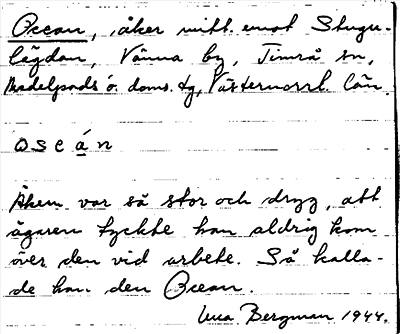 Ocean, åker mitt emot Stugu-
lägdan, Vänna by, Timrå sn,
Medelpads ö. doms. tg, Västernorrl. län
oseá̱n
Åkern var så stor och dryg, att
ägaren tyckte han aldrig kom
över den vid arbete. Så kalla-
de han den Ocean.
Bergman 1944.